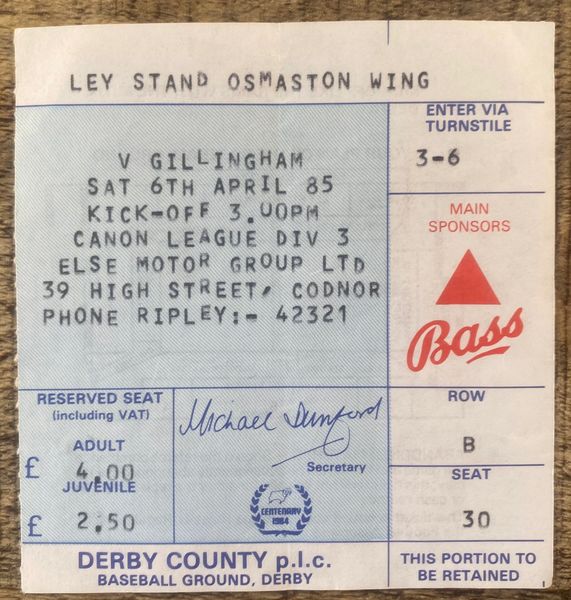 LEY STAND OSMASTON WING
ENTER VIA
TURNSTILE
3-6
V GILLINGHAM
SAT 6TH APRIL 85
KICK-OFF 3.00PM
CANON LEAGUE DIV 3
ELSE MOTOR GROUP LTD
39 HIGH STREET, CODNOR
PHONE RIPLEY:- 42321
MAIN
SPONSORS
Bass
RESERVED SEAT
(including VAT)
ADULT
£ 4.00
JUVENILE
£ 2.50
Michael Dunford
Secretary
CENTENARY
1984
ROW
B
SEAT
30
DERBY COUNTY p.l.c.
BASEBALL GROUND, DERBY
THIS PORTION TO
BE RETAINED